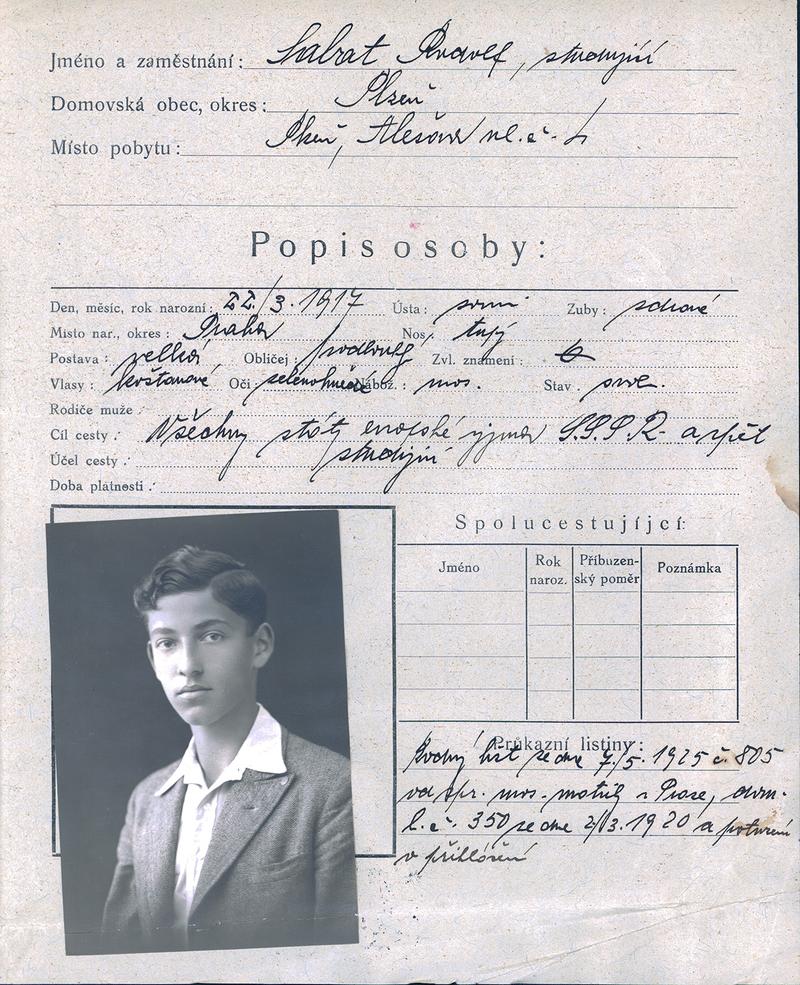 Jméno a zaměstnání: Sabat Rudolf, studující
Domovská obec, okres: Plzeň
Místo pobytu: Plzeň, Alešova ul. č.
Popis osoby:
Den, měsíc, rok narození: 22/3. 1917 Ústa: Zuby: zdravé
Místo nar., okres: Praha Nos: tupý
Postava: velká Obličej: podlouhlý Zvl. znamení:
Vlasy: kaštanové Oči: zelenohnědé Nábož.: mos. Stav: svob.
Rodiče muže:
Cíl cesty: Všechny státy evropské vyjma S.S.S.R. a zpět
Účel cesty: studijní
Doba platnosti:
Spolucestujíjcí:
Jméno Rok naroz. Příbuzen-ský poměr Poznámka
Průkazní listiny:
Rodný list ze dne 7./5. 1925 č. 805
od spr. mos. matrik v Praze, dom.
l. č. 350 ze dne 2/3. 1920 a potvrzení
o přihlášení